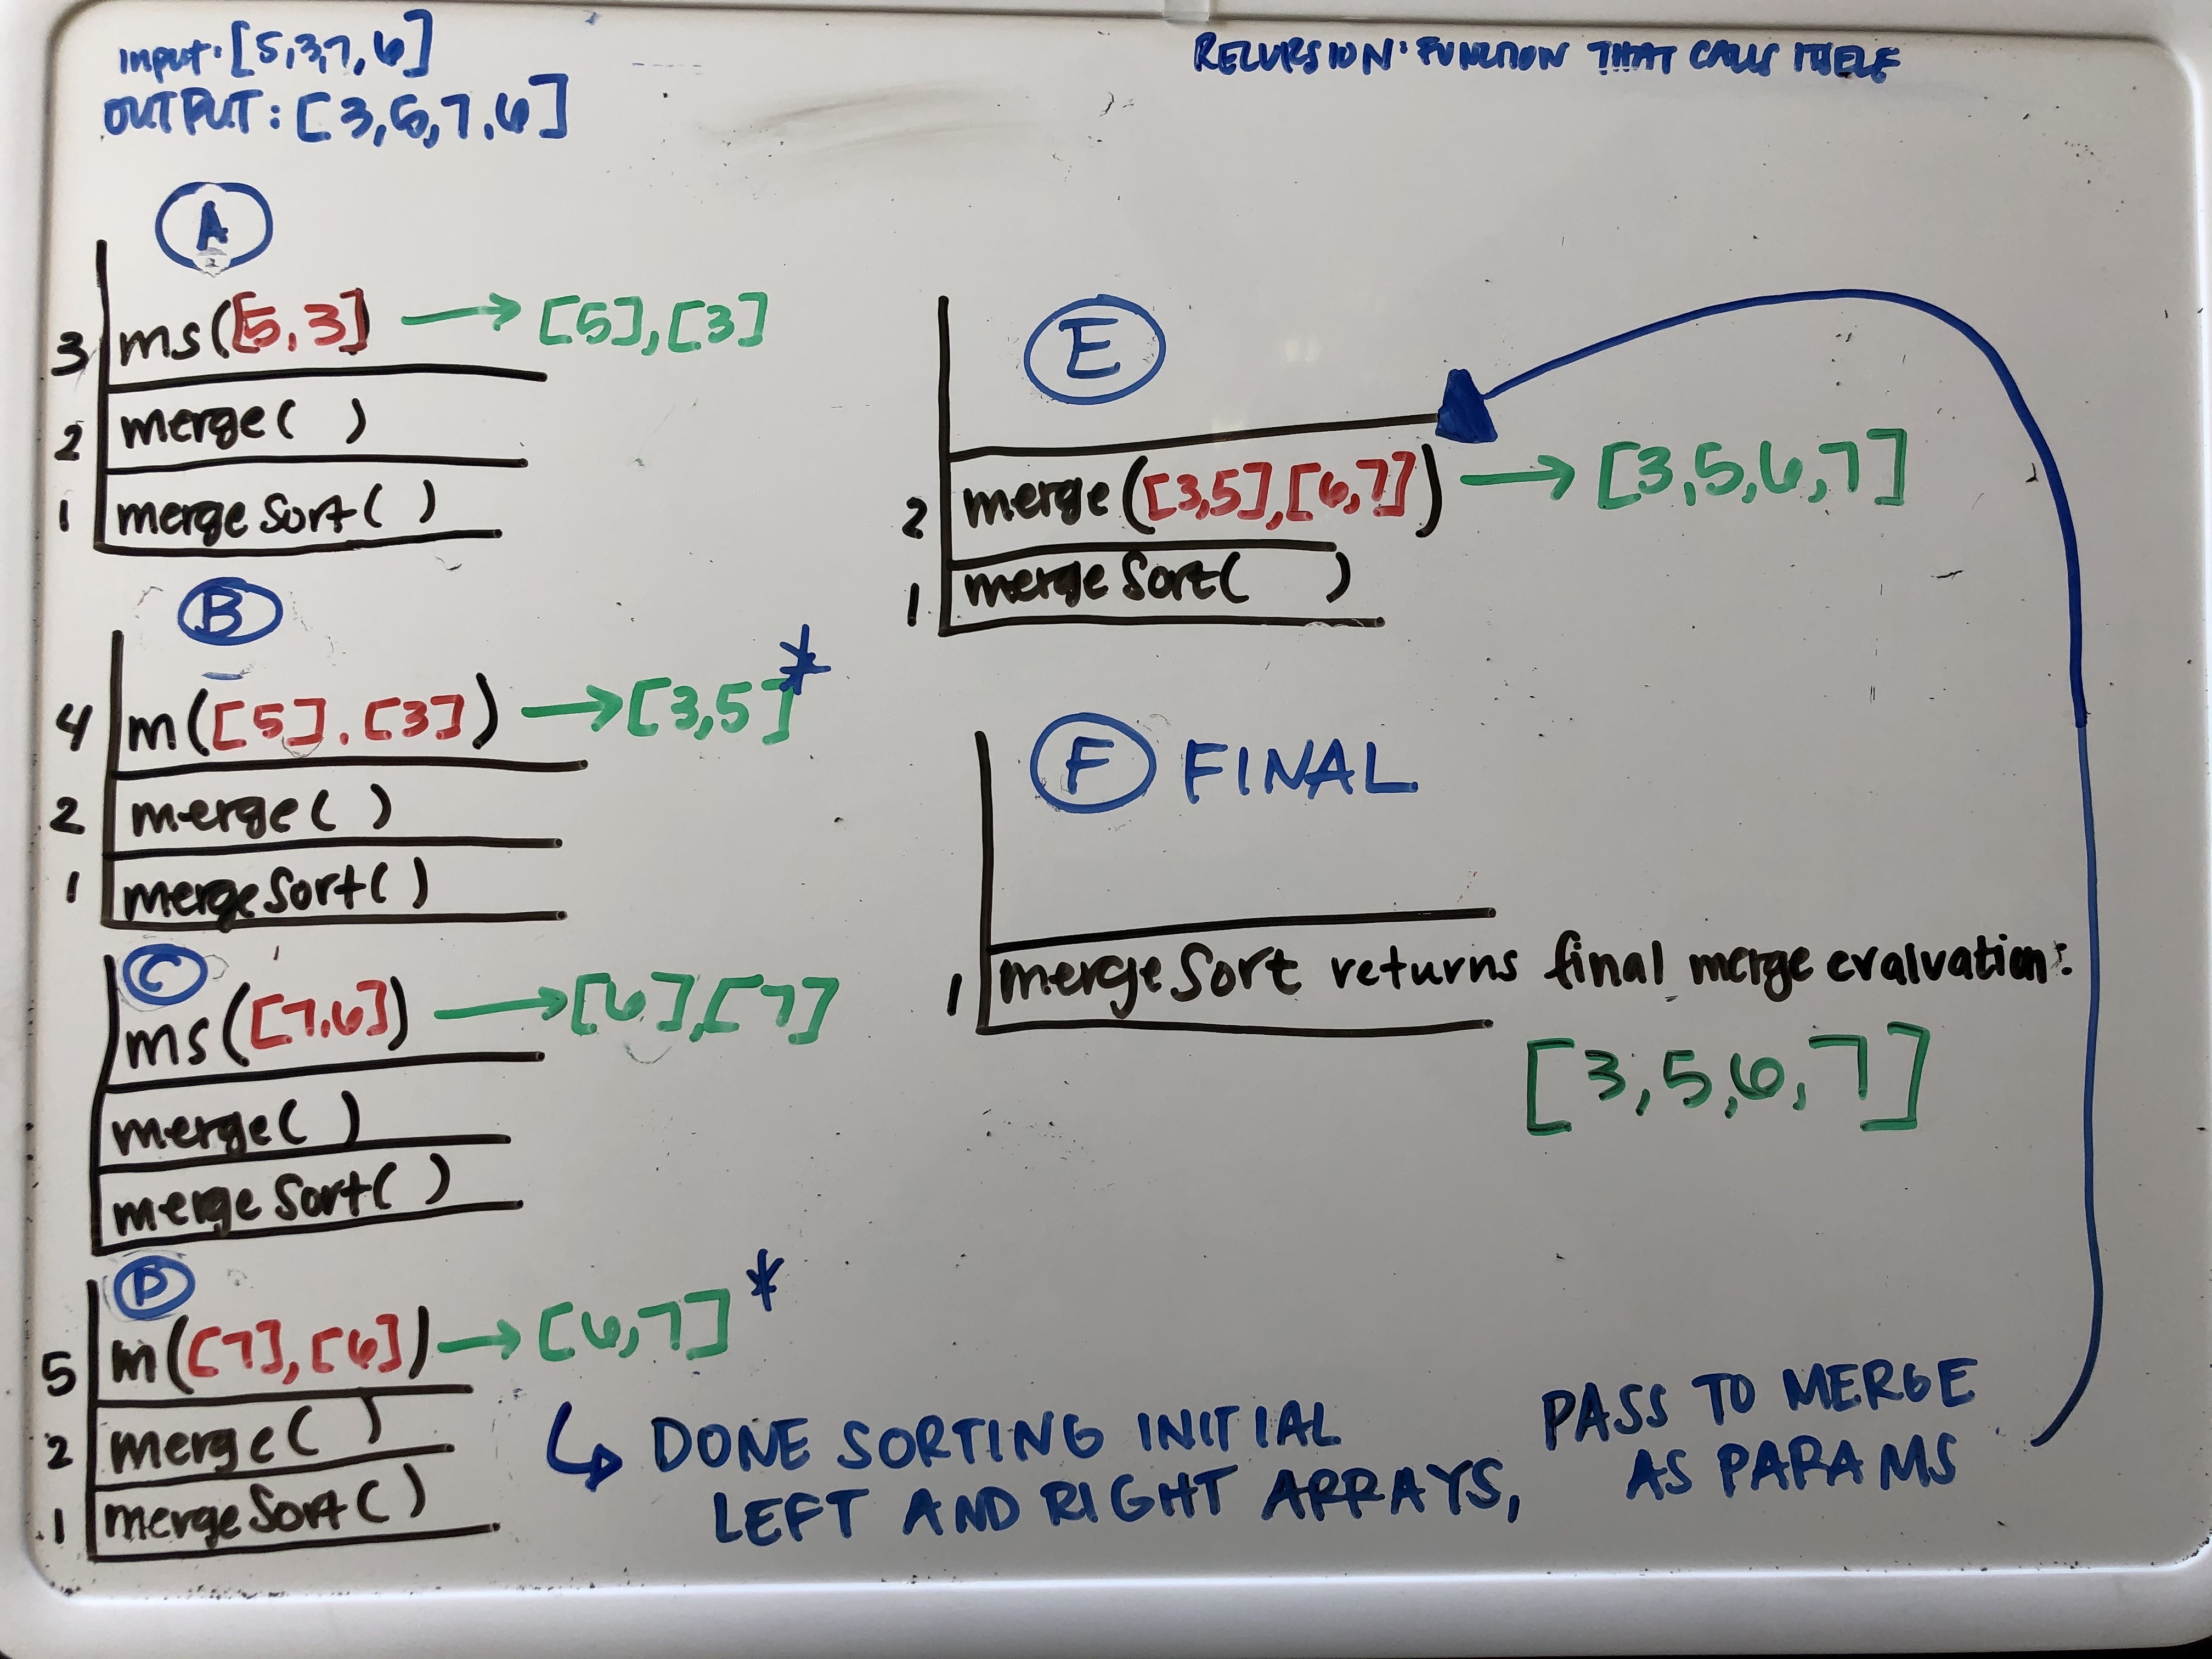 Input: [5,3,7,6]
OUTPUT: [3,5,7,6]
RECURSION: FUNCTION THAT CALLS ITSELF
A
3 ms([5,3] → [5],[3]
2 merge( )
1 mergeSort( )
B
4 m([5].[3]) → [3,5]*
2 merge( )
1 mergeSort( )
C
ms([7,6]) → [6],[7]
merge( )
mergeSort( )
D
5 m([7],[6]) → [6,7] *
2 merge( )
1 mergeSort( )
↳ DONE SORTING INITIAL
LEFT AND RIGHT ARRAYS,
PASS TO MERGE
AS PARAMS
E
2 merge([3,5],[6,7]) → [3,5,6,7]
1 mergeSort( )
F FINAL
1 mergeSort returns final merge evalvation:
[3,5,6,7]